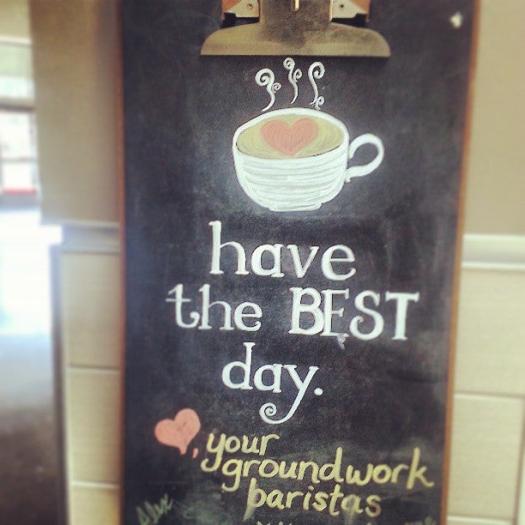 have
the BEST
day.
, your
groundwork
baristas
Alex